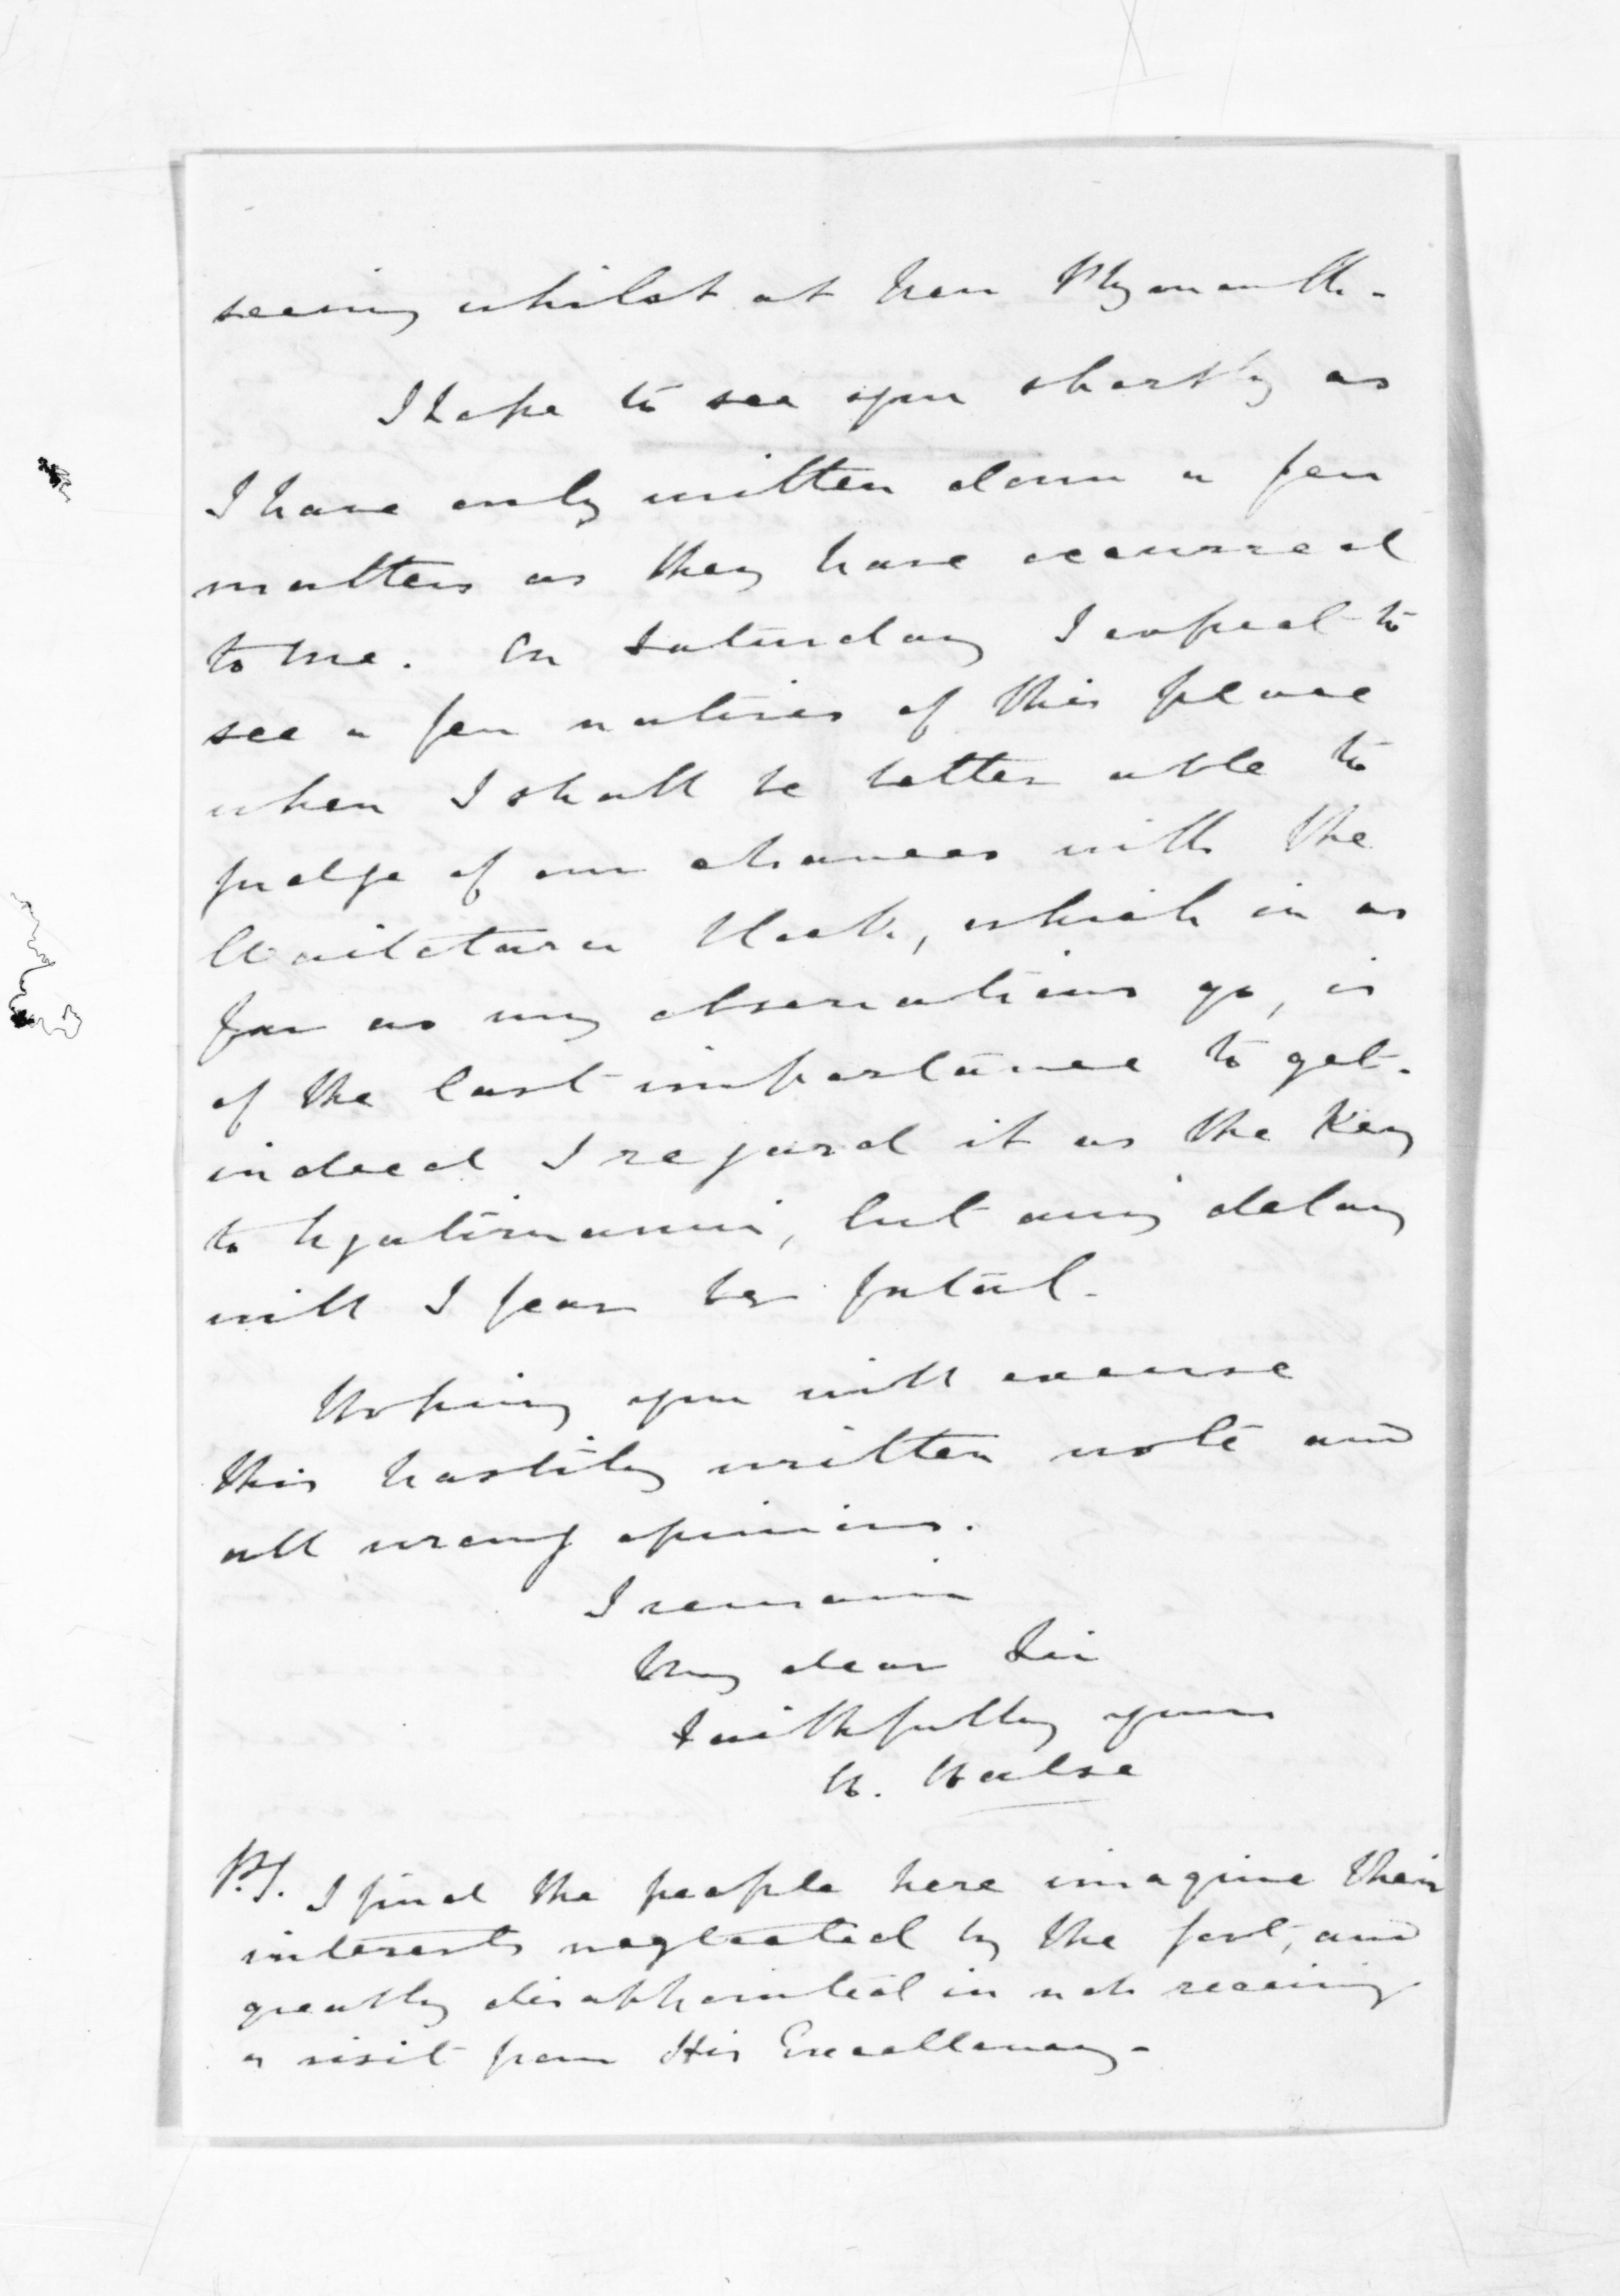 seeing whilst at New Plymouth.
I hope to see you shortly as
I have only written down a few
matters as they have occurred
to me. On Saturday I expect to
see a few natives of this place
when I shall be better able to
judge of our chances with the
Waitotara Block, which in as
far as my observations go, is
of the last importance to get.
indeed I regard it as the Key
to Ngatiruanui, but any delay
will I fear be fatal.
Hoping you will excuse
this hastily written note and
all wrong opinions.
I remain
My dear Sir
Faithfully yours
H. Halse
P.S. I find the people here imagine their
interests neglected by the Govt, and
greatly disappointed in not receiving
a visit from His Excellency.